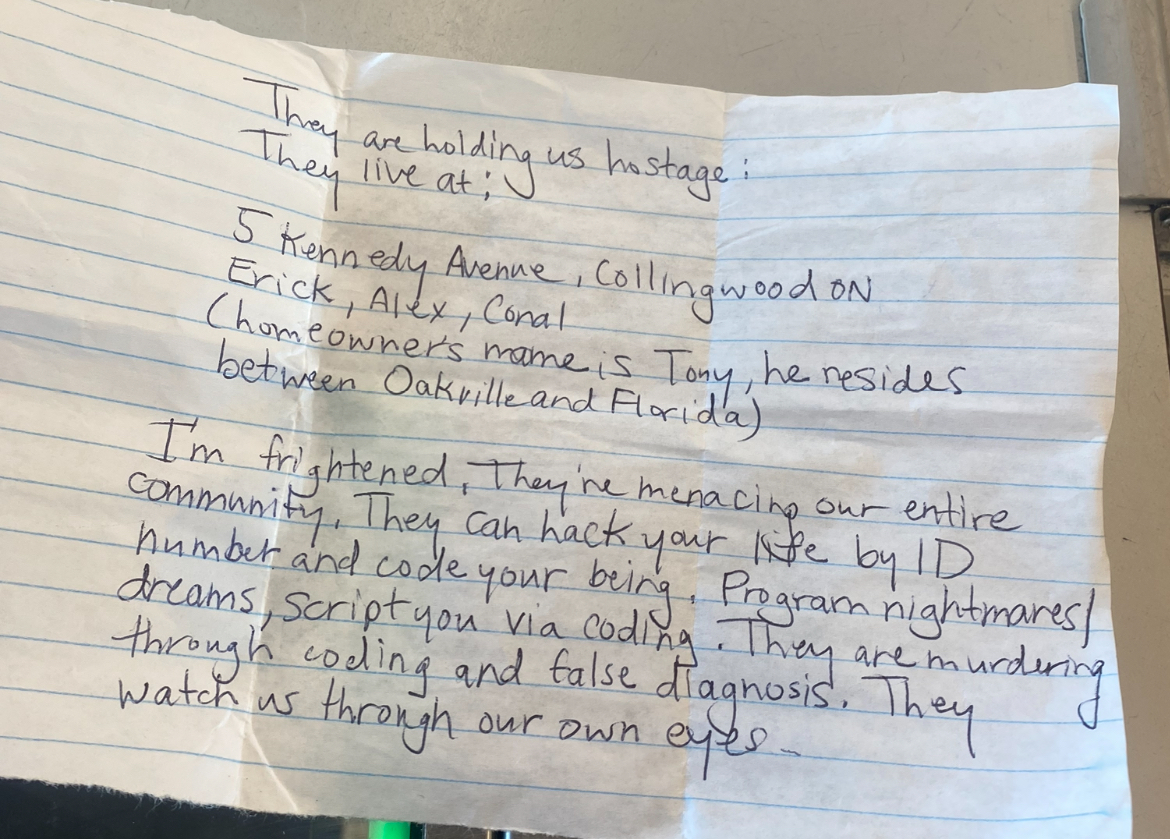 They are holding us hostage:
They live at;
5 Kennedy Avenue, Collingwood ON
Erick, Alex, Conal
(homeowner's name is Tony, he resides
between Oakville and Florida)
I'm frightened, They're menacing our entire
community. They can hack your life by ID
number and code your being. Program nightmares/
dreams, script you via coding. They are murdering
through coding and false diagnosis. They
watch us through our own eyes-